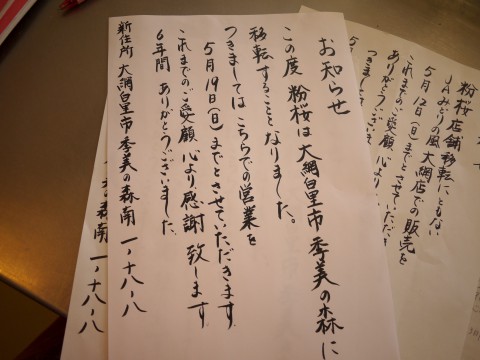 お知らせ
この度 粉桜は大網白里市季美の森に
移転することとなりました。
つきましてはこちらでの営業を
5月19日(日)までとさせていただきます
これまでのご愛顧 心より感謝致します
6年間 ありがとうございました。
新住所 大網白里市季美の森南 一ー十八ー八
粉桜店舗移転にともない
JAみどりの風大網店での販売を
5月12日(日)までとさせていただき
これまでのご愛顧 心より
ありがとうございま
つきまして
5
森南 一ー十八ー八